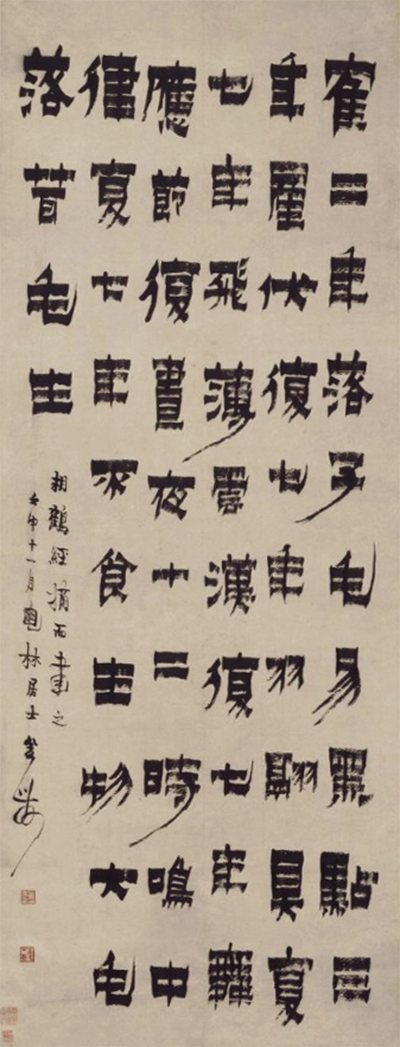 隺二年落子毛易黑點三
年產伏復七年羽翮具复
七年飛薄雲漢復七年舞
應節復晝夜十二時鳴中
律复七年不食生物大毛
落茸毛生
相鶴經摘而書之
壬申十一月 林居士